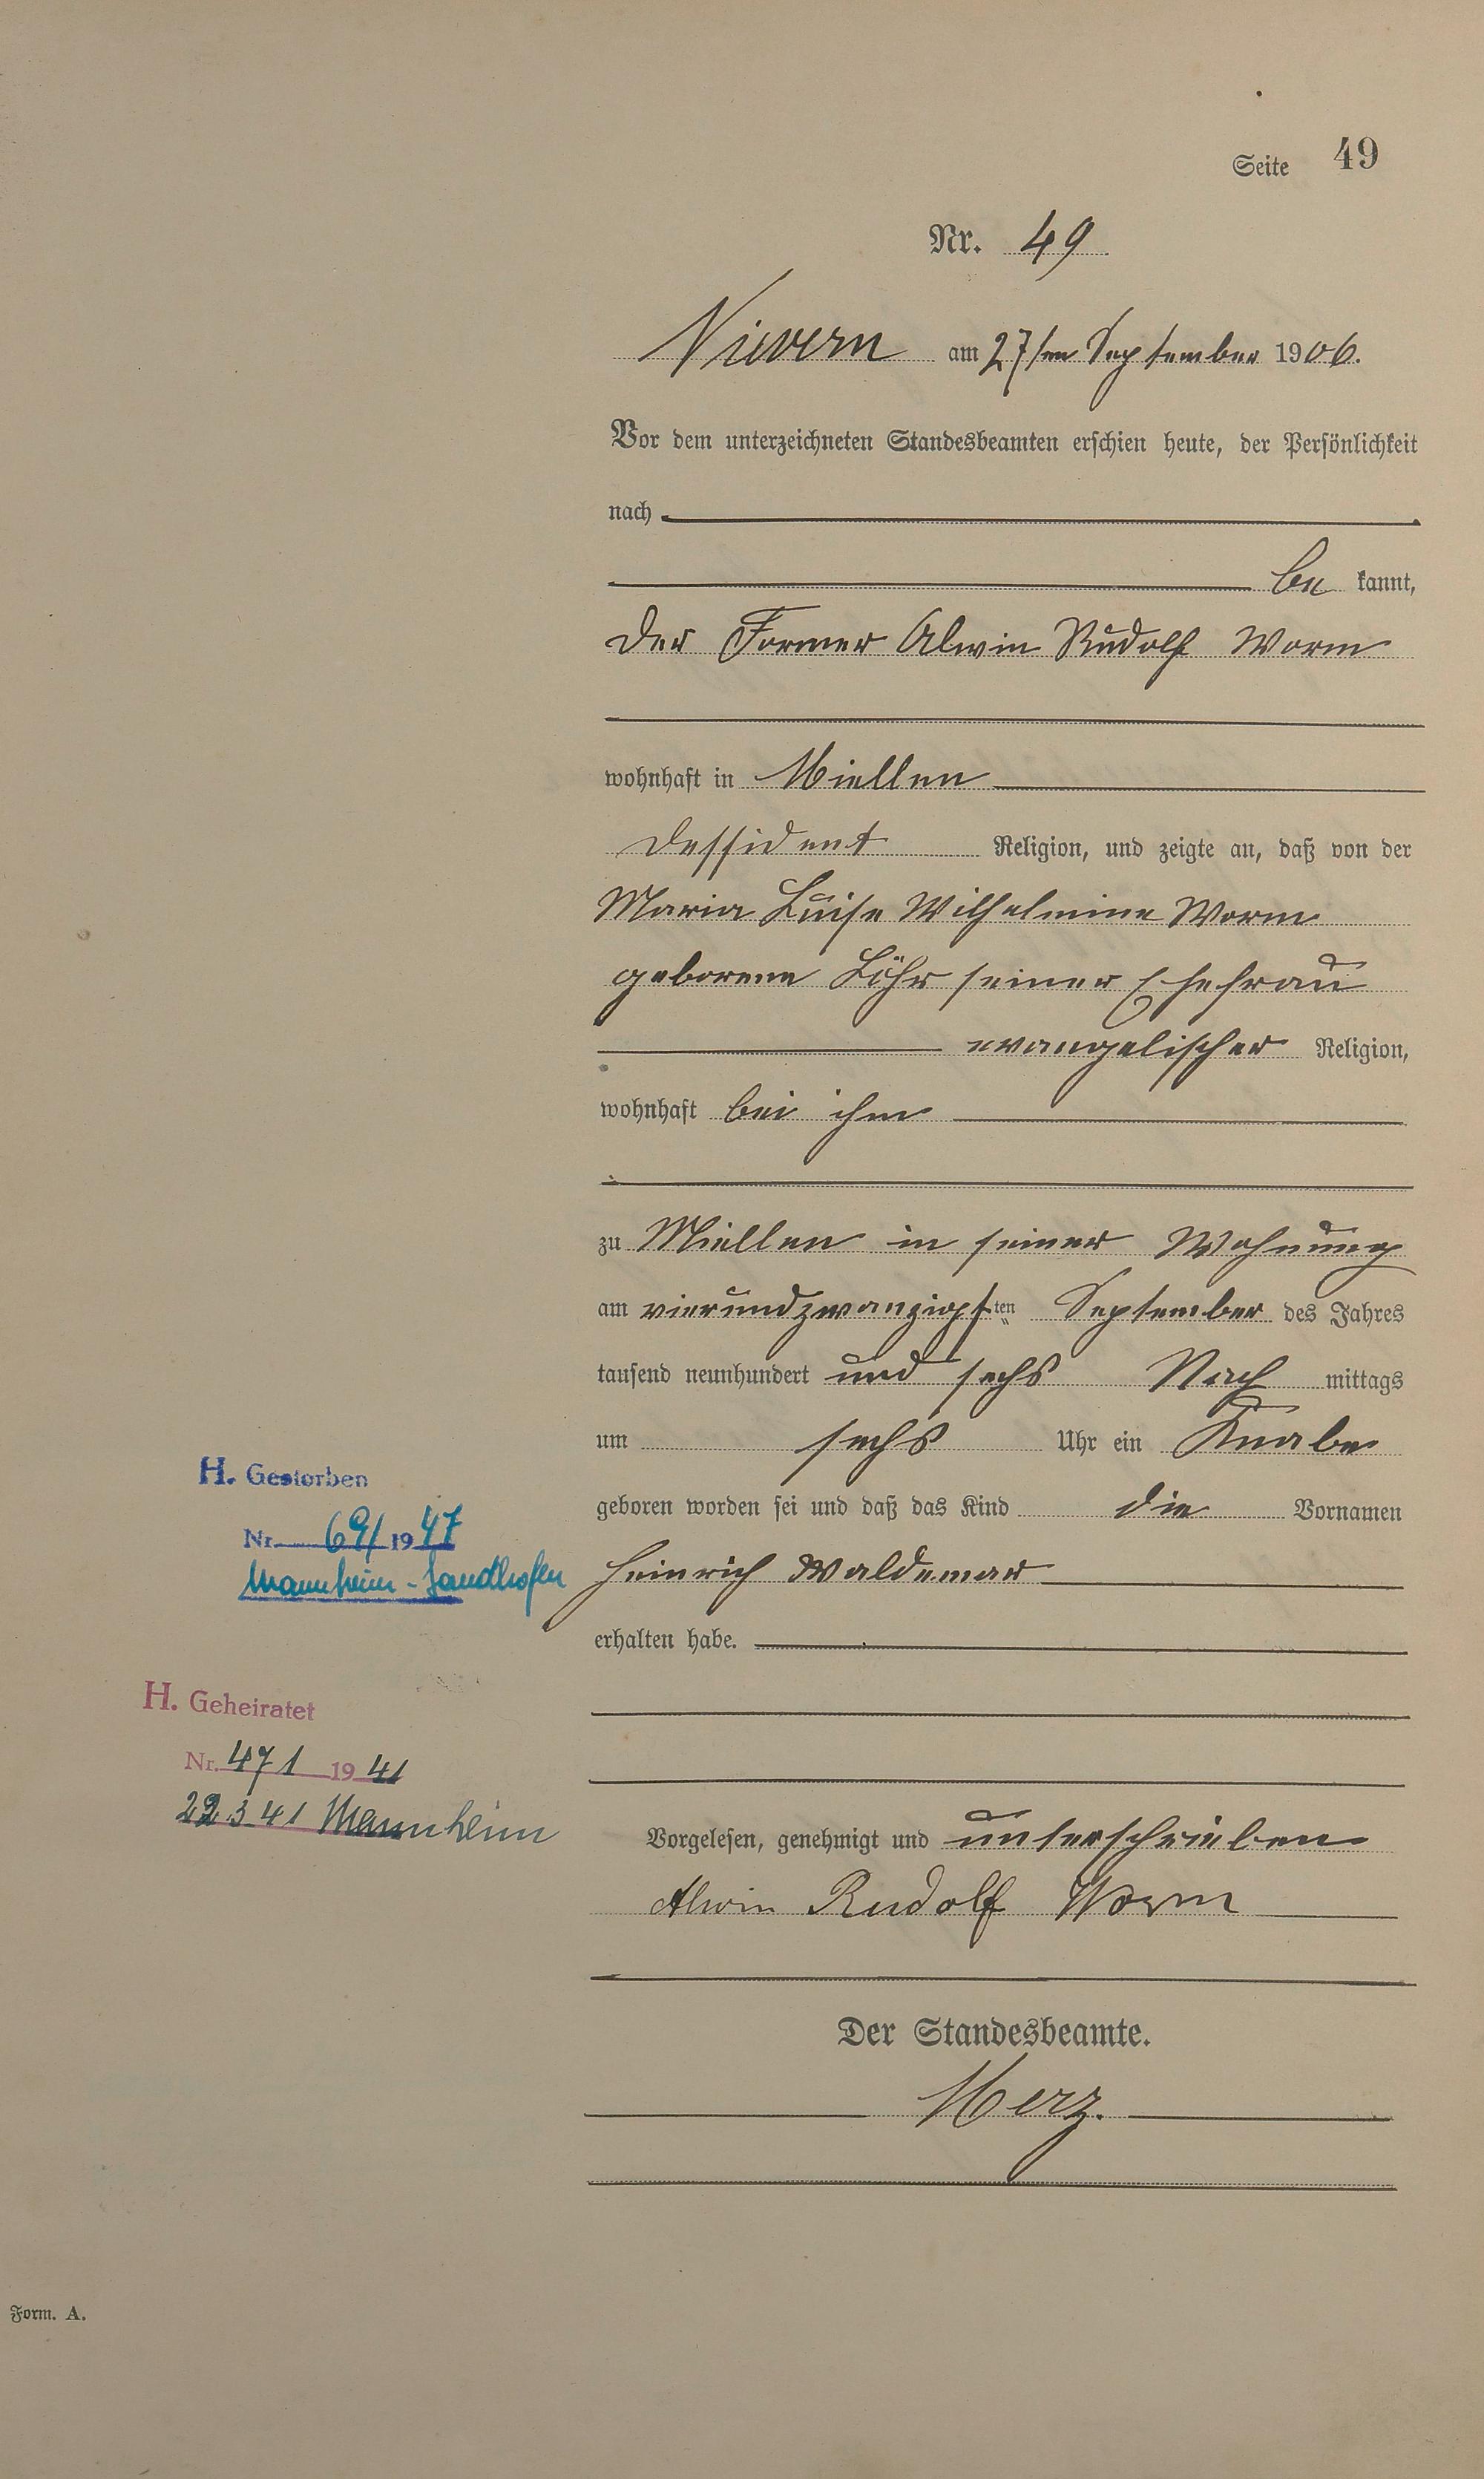 Seite 49
Nr. 49
Nievern am 27ten September 1906.
Vor dem unterzeichneten Standesbeamten erschien heute, der Persönlichkeit
nach
be kannt,
der Former Alwin Rudolf Worm
wohnhaft in Miellen
Dessident Religion, und zeigte an, daß von der
Maria Luise Wilhelmine Worm
geborene Löhr seiner Ehefrau
evangelischer Religion,
wohnhaft bei ihm
zu Miellen in seiner Wohnung
am vierundzwanzigsten September des Jahres
tausend neunhundert und sechs Nach mittags
um sechs Uhr ein Knabe
geboren worden sei und daß das Kind die Vornamen
Heinrich Waldemar
erhalten habe.
H. Gestorben
Nr. 69/1947
Mannheim-Sandhofen
H. Geheiratet
Nr. 471 1941
22.3.41 Mannheim
Vorgelesen, genehmigt und unterschrieben
Alwin Rudolf Worm
Der Standesbeamte.
Merz.
Form. A.